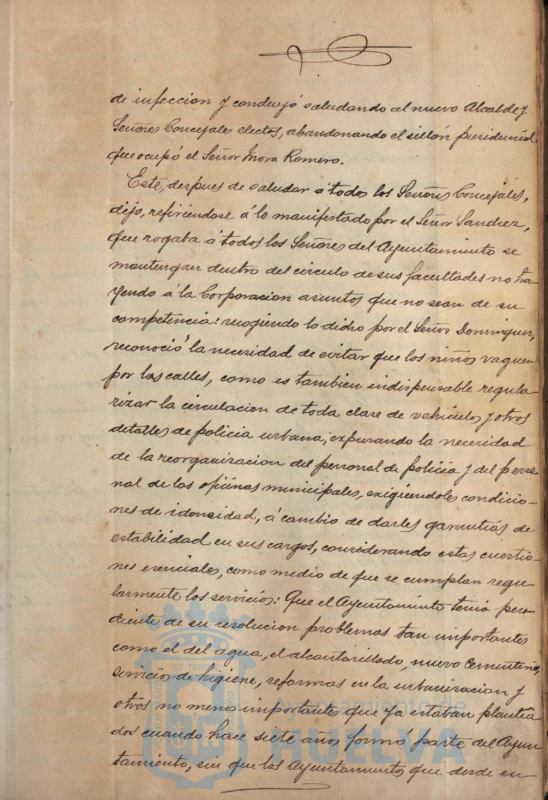 de infeccion y condujó saludando al nuevo Alcalde y
Señores Concejales electos, abandonando el sillón presidencial
que ocupó el Señor Mora Romero.
Este, despues de saludar á todos los Señores Concejales,
dijo, refiriendose á lo manifestado por el Señor Sanchez,
que rogaba á todos los Señores del Ayuntamiento se
mantengan dentro del circulo de sus facultades no tra-
yendo á la Corporacion asuntos que no sean de su
competencia: recogiendo lo dicho por el Señor Dominguez,
reconoció la necesidad de evitar que los niños vaguen
por las calles, como es tambien indispensable regula-
rizar la circulacion de toda clase de vehiculos y otros
detalles de policia urbana; expusando la necesidad
de la reorganizacion del personal de policia y del perso-
nal de las oficinas municipales, exigiendoles condicio-
nes de idoneidad, á cambio de darles garantias de
estabilidad en sus cargos, considerando estas cuestio-
nes esenciales, como medio de que se cumplan regu-
larmente los servicios: Que el Ayuntamiento tenia pen-
diente de su resolucion problemas tan importantes
como el del agua, el alcantarillado, nuevo Cementerio,
servicios de higiene, reformas en la urbanizacion y
otros no menos importantes que ya estaban plantea-
dos cuando hace siete años formó parte del Ayun-
tamiento, sin que los Ayuntamientos que desde en-
Ayuntamiento de
HUELVA